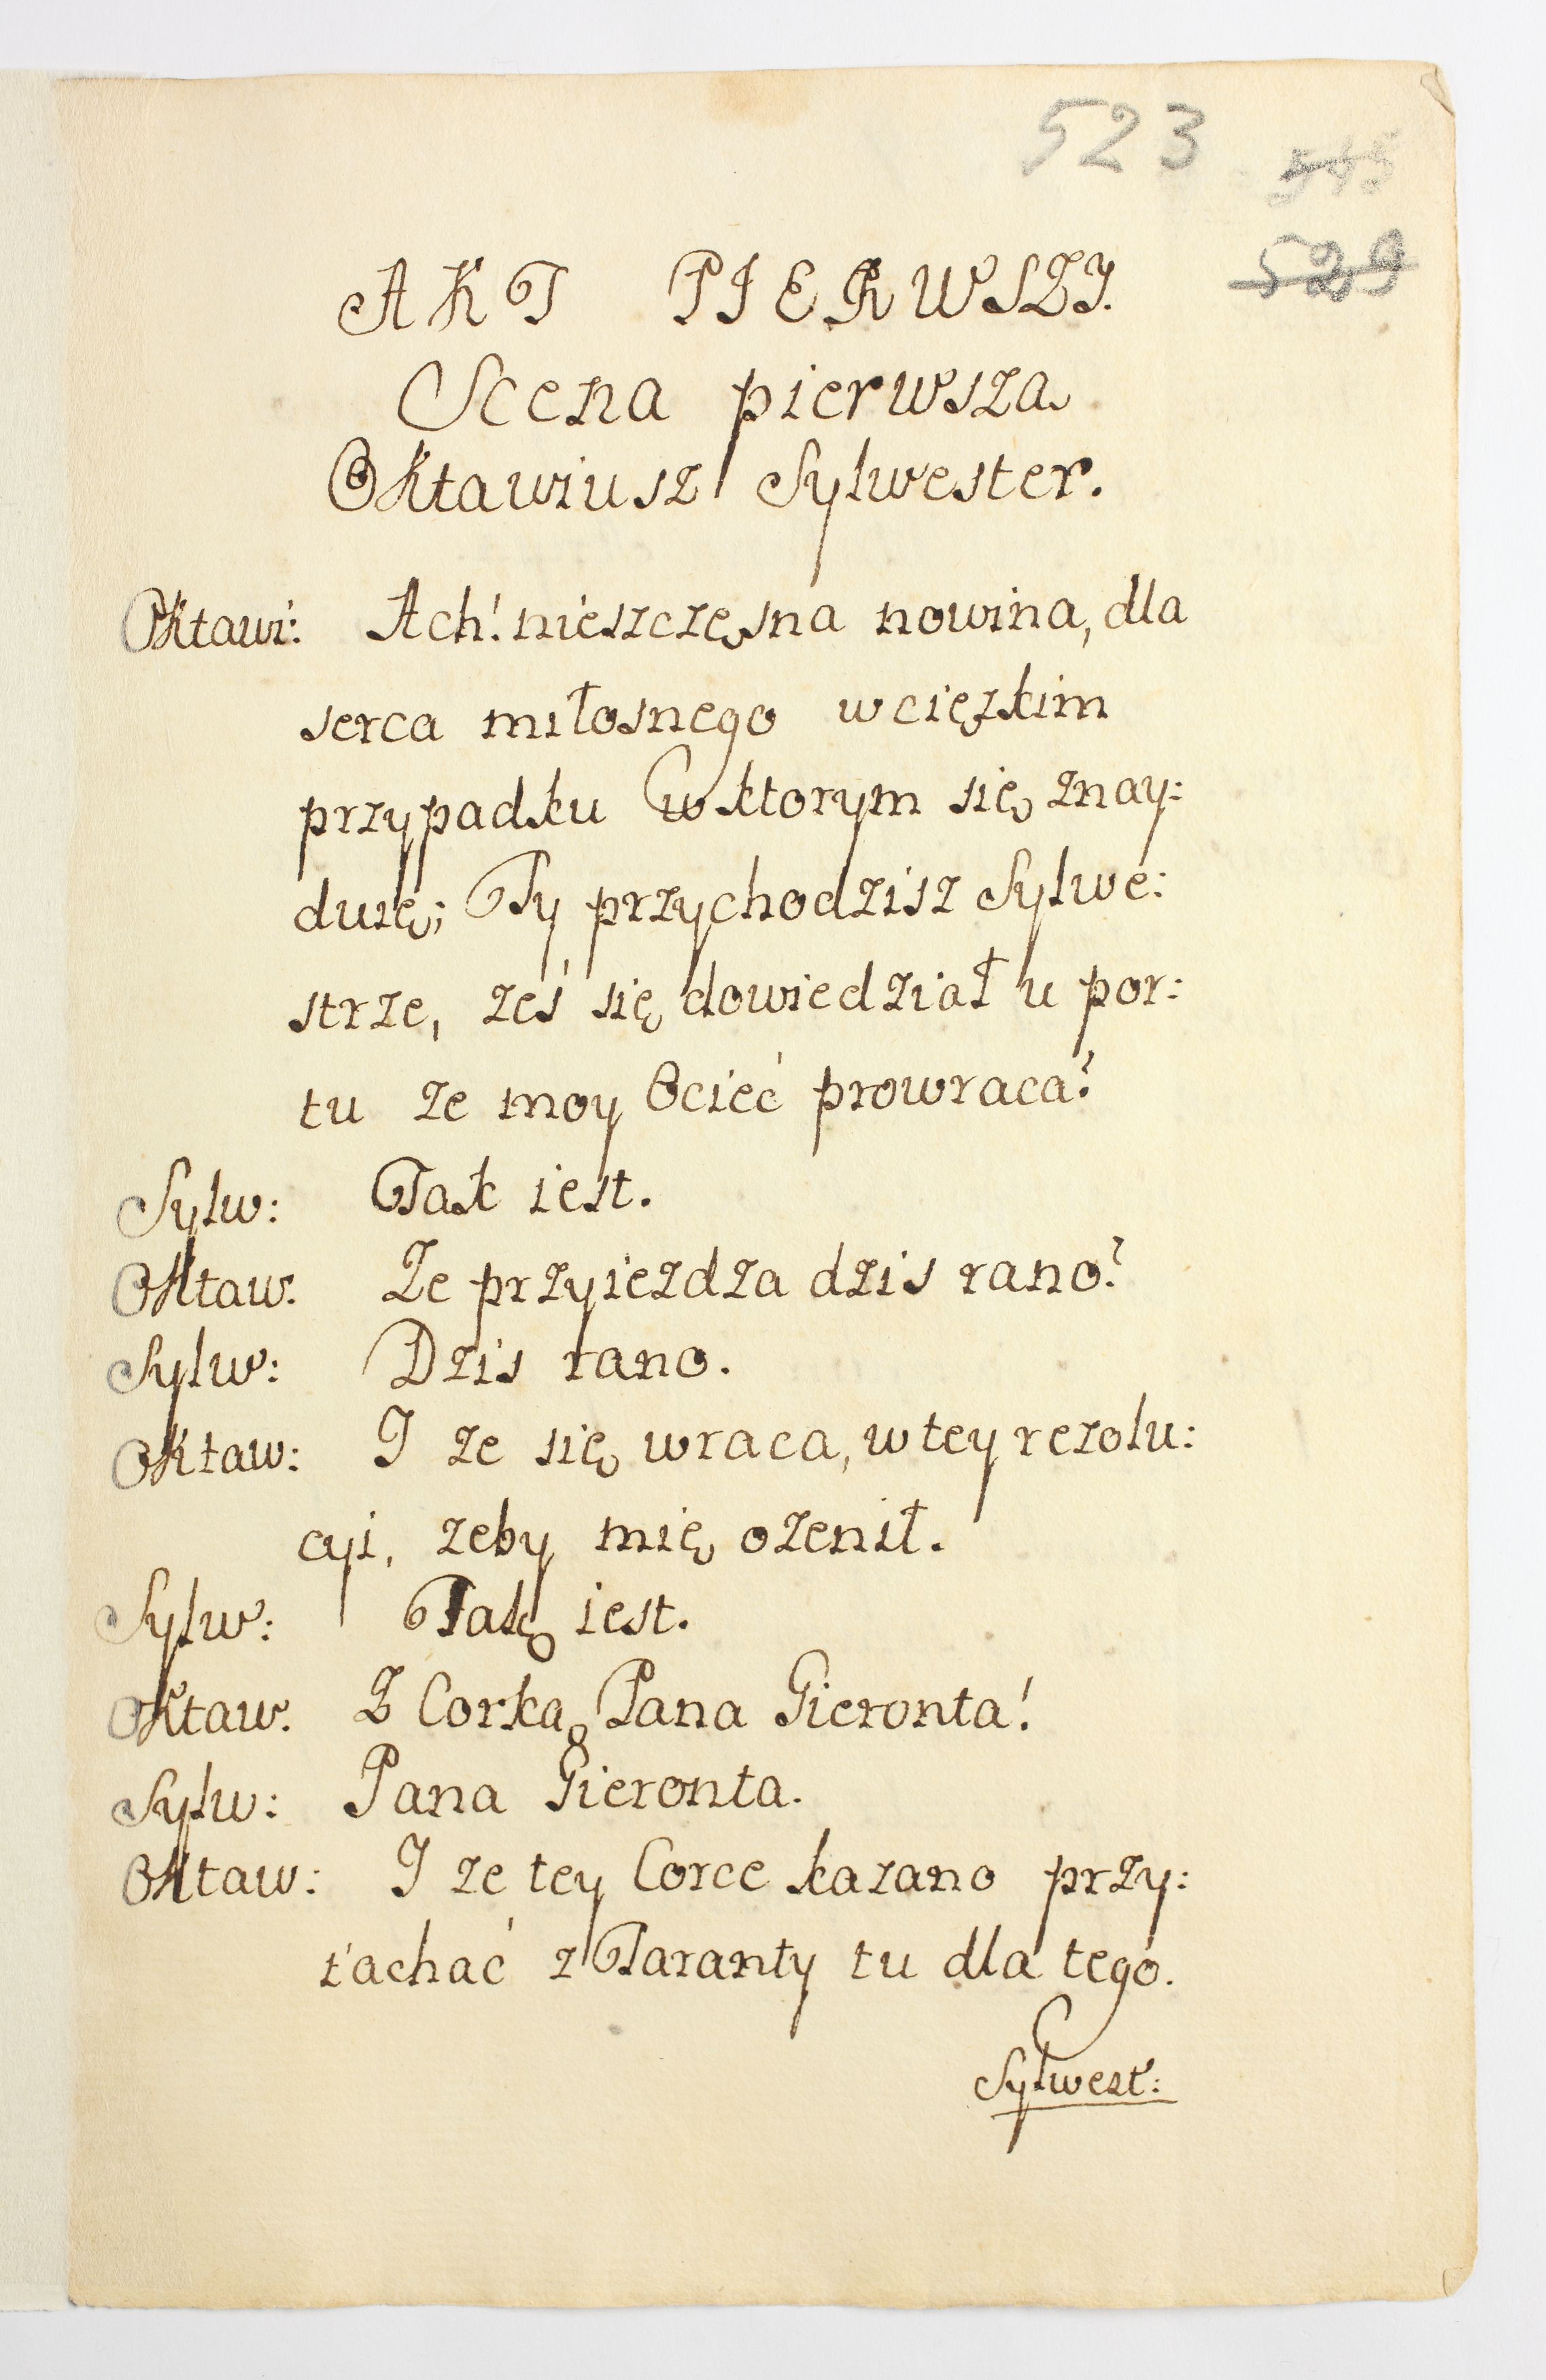 523
545
529
AKT PIERWSZY.
Scena pierwsza.
Oktawiusz Sylwester.
Oktawi: Ach! nieszczęsna nowina, dla
serca miłosnego w cięzkim
przypadku w ktorym się znay:
duię; Ty przychodzisz Sylwe:
strze, ześ się dowiedział u por:
tu ze moy Ociec prowraca?
Sylw: Tak iest.
Oktaw. Ze przyiezdza dzis rano?
Sylw: Dzis rano.
Oktaw: I ze się wraca, w tey rezolu:
cyi, zeby mię ozenił.
Sylw: Tak iest.
Oktaw. Z Corką Pana Gieronta!
Sylw: Pana Gieronta.
Oktaw: I ze tey Corce kazano przy:
iachać z Taranty tu dla tego.
Sylwest: